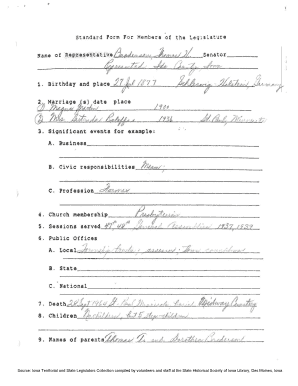 Standard Form For Members of the Legislature
Name of Representative Brodersen, Thomas H. Senator
Represented Ida County, Iowa
1. Birthday and place 27 Jul 1877 Schleswig Holstein, Germany
2. Marriage (s) date place
1900
2) Mrs. 1936 St. Paul, Minnesota
3. Significant events for example:
A. Business
B. Civic responsibilities
C. Profession Farmer
4. Church membership Presbyterian
5. Sessions served 47th, 48th General Assemblies 1937, 1939
6. Public Offices
A. Local Township trustee; assessor; Town councilman
B. State
C. National
7. Death 28 Sept 1960 St. Paul Minnesota buried
8. Children No children, but 5 stepchildren
9. Names of parents Thomas and Dorothea Brodersen
Source: Iowa Territorial and State Legislators Collection compiled by volunteers and staff at the State Historical Society of Iowa Library, Des Moines, Iowa.